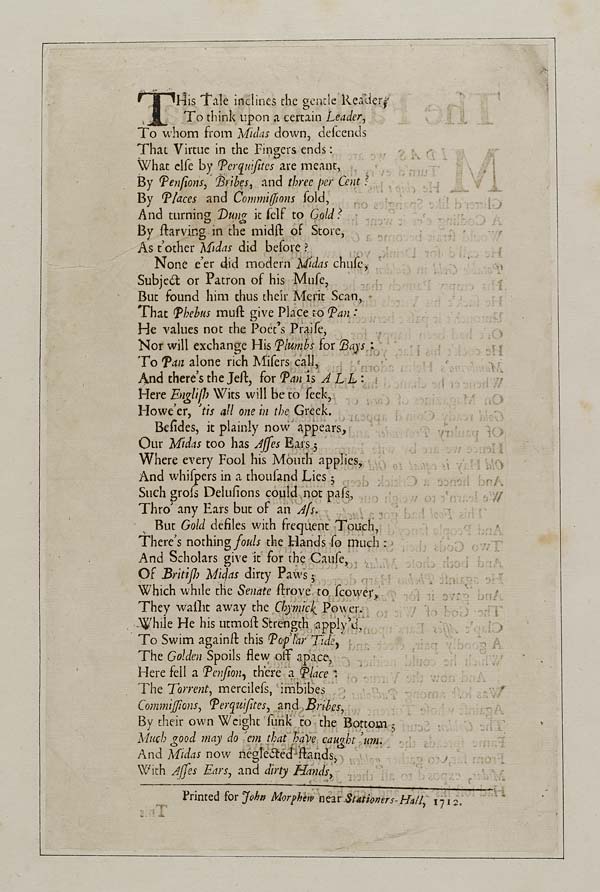 THis Tale inclines the gentle Reader,
To think upon a certain Leader,
To whom from Midas down, deſcends
That Virtue in the Fingers ends:
What elſe by Perquiſites are meant,
By Penſions, Bribes, and three per Cent?
By Places and Commiſſions ſold,
And turning Dung it ſelf to Gold?
By ſtarving in the midſt of Store,
As t'other Midas did before?
None e'er did modern Midas chuſe,
Subject or Patron of his Muſe,
But found him thus their Merit Scan,
That Phebus muſt give Place to Pan:
He values not the Poet's Praiſe,
Nor will exchange His Plumbs for Bays:
To Pan alone rich Miſers call,
And there's the Jeſt, for Pan is ALL:
Here Engliſh Wits will be to ſeek,
Howe'er, 'tis all one in the Greek.
Beſides, it plainly now appears,
Our Midas too has Aſſes Ears;
Where every Fool his Mouth applies,
And whiſpers in a thouſand Lies;
Such groſs Deluſions could not paſs,
Thro' any Ears but of an Aſs.
But Gold defiles with frequent Touch,
There's nothing fouls the Hands ſo much:
And Scholars give it for the Cauſe,
Of Britiſh Midas dirty Paws;
Which while the Senate ſtrove to ſcower,
They waſht away the Chymick Power.
While He his utmoſt Strength apply'd,
To Swim againſt this Pop'lar Tide,
The Golden Spoils flew off apace,
Here fell a Penſion, there a Place:
The Torrent, mercileſs, imbibes
Commiſſions, Perquiſites, and Bribes,
By their own Weight ſunk to the Bottom;
Much good may do 'em that have caught 'um.
And Midas now neglected ſtands,
With Aſſes Ears, and dirty Hands,
Printed for John Morphew near Stationers-Hall, 1712.